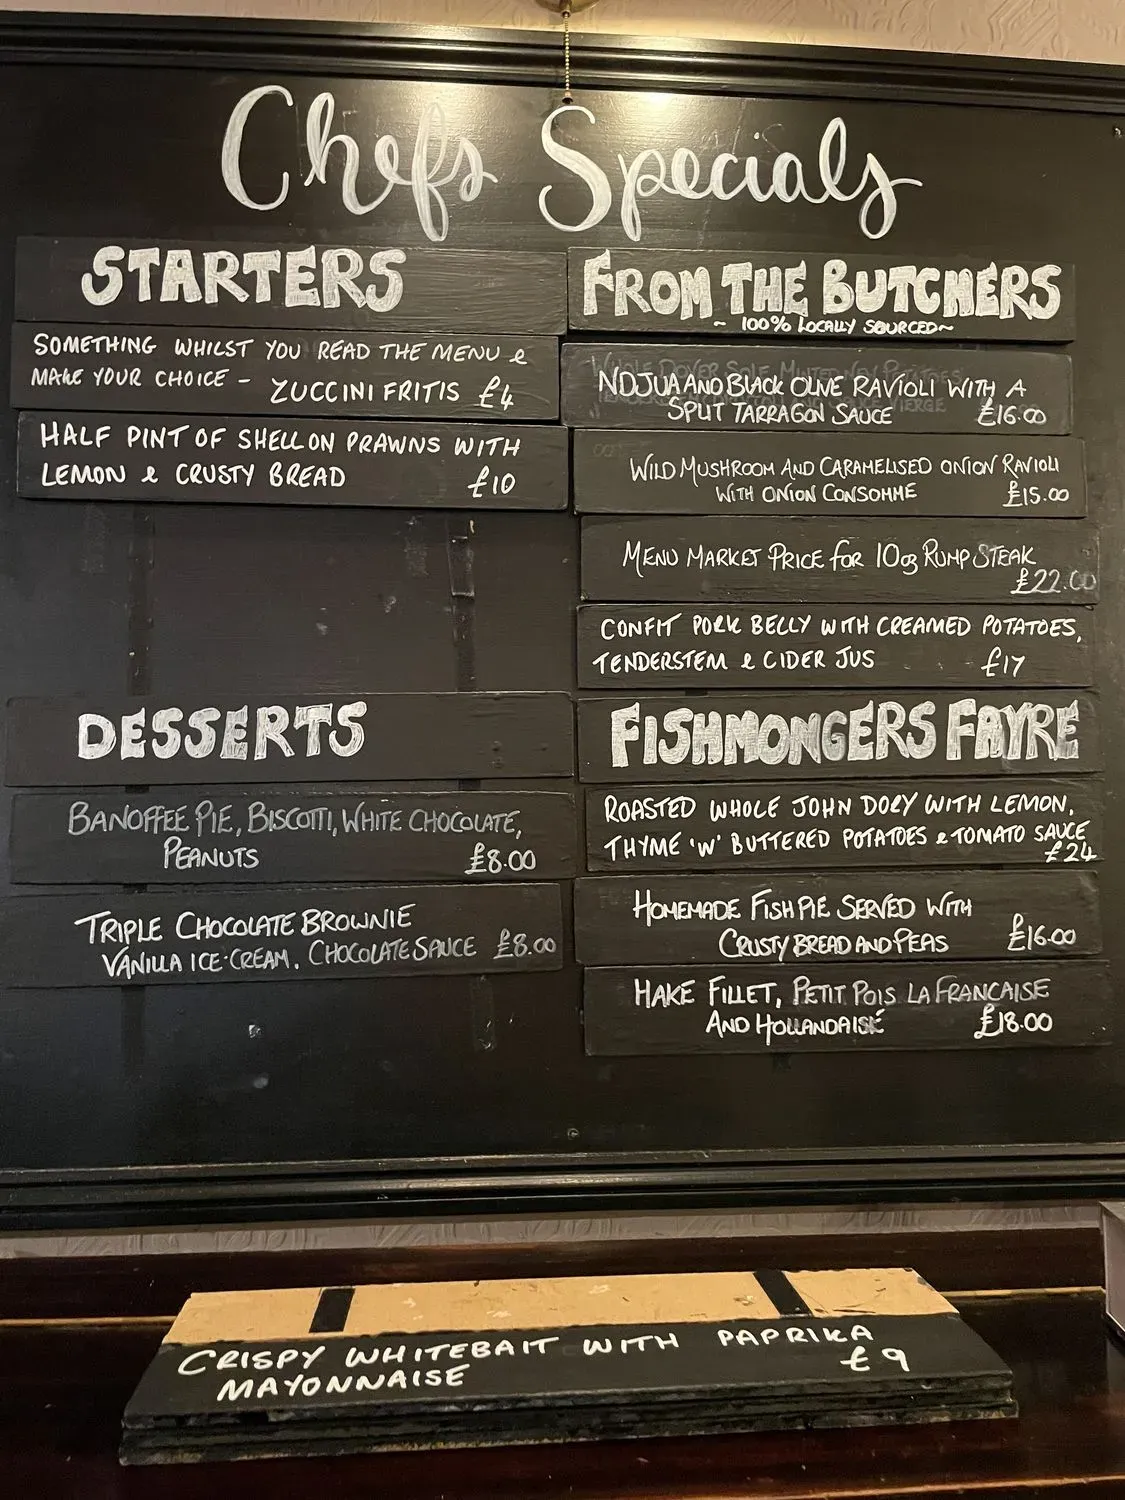 Chefs Specials
STARTERS
SOMETHING WHILST YOU READ THE MENU &
MAKE YOUR CHOICE - ZUCCINI FRITIS £4
HALF PINT OF SHELL ON PRAWNS WITH
LEMON & CRUSTY BREAD £10
DESSERTS
BANOFFEE PIE, BISCOTTI, WHITE CHOCOLATE,
PEANUTS £8.00
TRIPLE CHOCOLATE BROWNIE
VANILLA ICE-CREAM, CHOCOLATE SAUCE £8.00
FROM THE BUTCHERS
~ 100% LOCALLY SOURCED ~
NDJUA AND BLACK OLIVE RAVIOLI WITH A
SPLIT TARRAGON SAUCE £16.00
WILD MUSHROOM AND CARAMELISED ONION RAVIOLI
WITH ONION CONSOMME £15.00
MENU MARKET PRICE for 10oz RUMP STEAK
£22.00
CONFIT PORK BELLY WITH CREAMED POTATOES,
TENDERSTEM & CIDER JUS £17
FISHMONGERS FAYRE
ROASTED WHOLE JOHN DORY WITH LEMON,
THYME 'N' BUTTERED POTATOES & TOMATO SAUCE
£24
HOMEMADE FISH PIE SERVED WITH
CRUSTY BREAD AND PEAS £16.00
HAKE FILLET, PETIT POIS LA FRANCAISE
AND HOLLANDAISÉ £18.00
CRISPY WHITEBAIT WITH PAPRIKA
MAYONNAISE £9